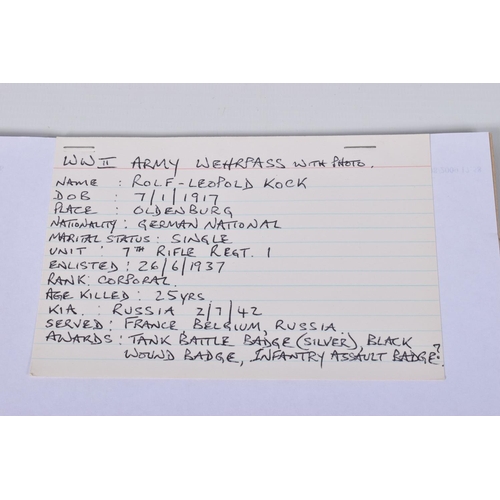 WW II ARMY WEHRPASS WITH PHOTO.
NAME : ROLF-LEOPOLD KOCK
DOB : 7/1/1917
PLACE : OLDENBURG
NATIONALITY: GERMAN NATIONAL
MARITAL STATUS: SINGLE
UNIT : 7TH RIFLE REGT. 1
ENLISTED: 26/6/1937
RANK: CORPORAL
AGE KILLED: 25 YRS.
KIA: RUSSIA 2/7/42
SERVED: FRANCE BELGIUM, RUSSIA.
AWARDS: TANK BATTLE BADGE (SILVER), BLACK
WOUND BADGE, INFANTRY ASSAULT BADGE.?